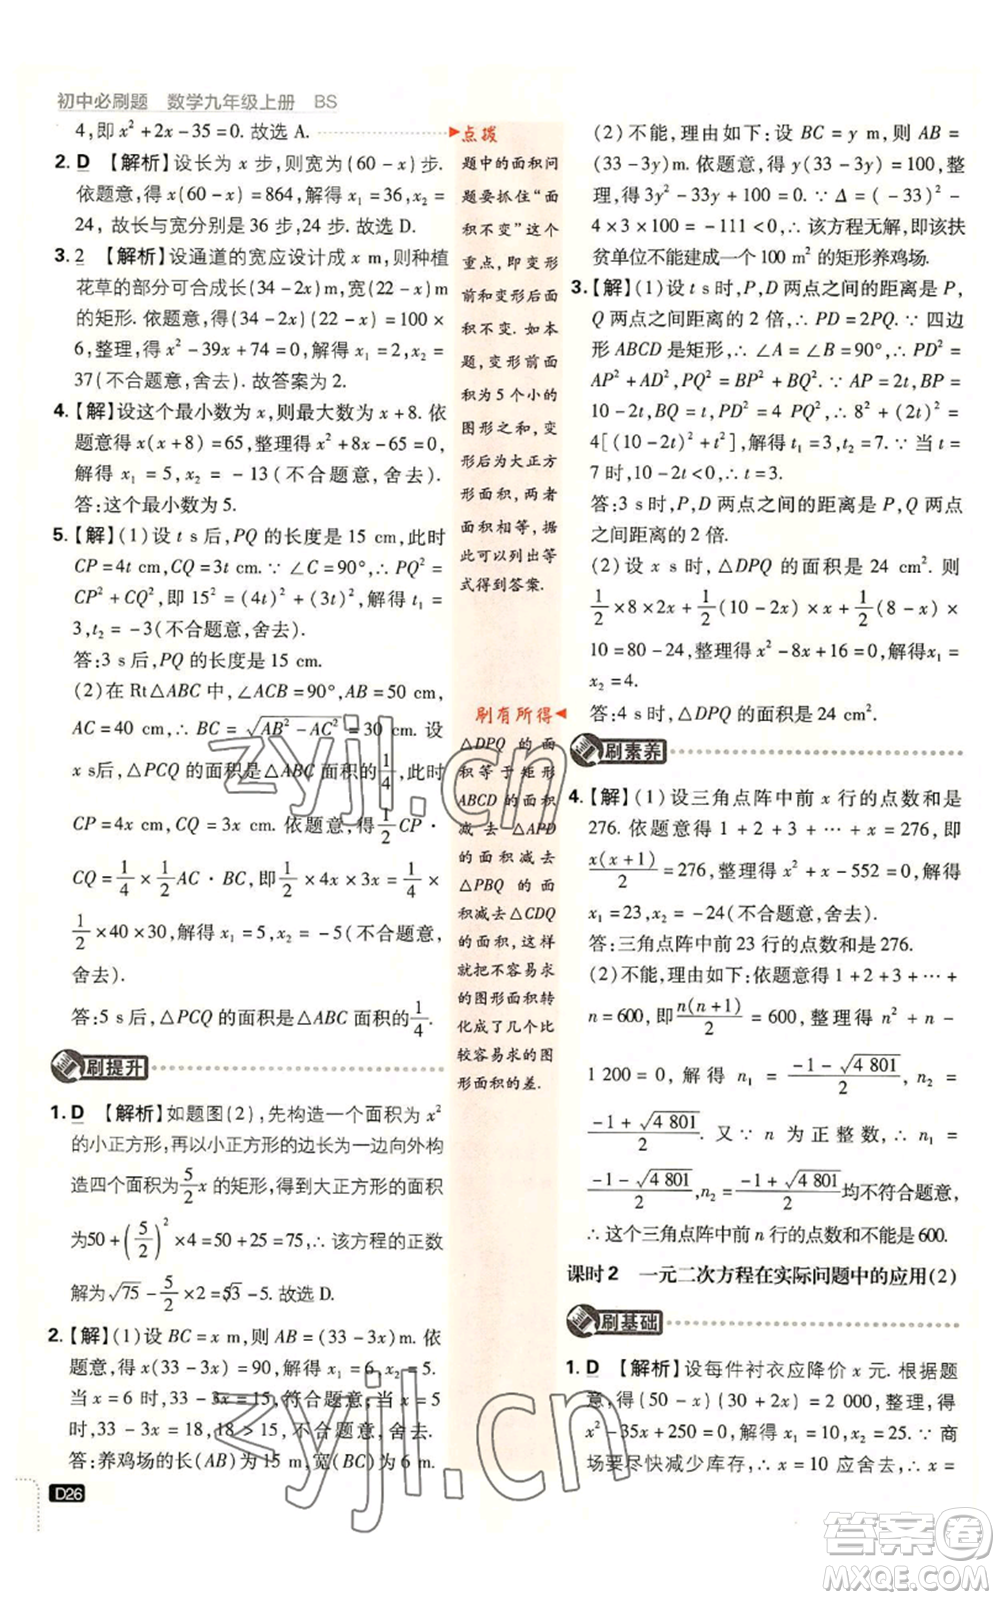 初中必刷题 数学九年级上册 BS
4,即 x²+2x-35=0. 故选 A.
2. D 【解析】设长为 x 步,则宽为(60-x)步.
依题意,得 x(60-x)=864,解得 x₁=36,x₂=
24,故长与宽分别是 36 步,24 步.故选 D.
3. 2 【解析】设通道的宽应设计成 x m,则种植
花草的部分可合成长(34-2x)m,宽(22-x)m
的矩形. 依题意,得(34-2x)(22-x)=100×
6,整理,得 x²-39x+74=0,解得 x₁=2,x₂=
37(不合题意,舍去).故答案为 2.
4.【解】设这个最小数为 x,则最大数为 x+8. 依
题意得 x(x+8)=65,整理得 x²+8x-65=0,
解得 x₁=5,x₂=-13(不合题意,舍去).
答:这个最小数为 5.
5.【解】(1)设 t s后,PQ 的长度是 15 cm,此时
CP=4t cm,CQ=3t cm.∵∠C=90°,∴PQ²=
CP²+CQ²,即 15²=(4t)²+(3t)²,解得 t₁=
3,t₂=-3(不合题意,舍去).
答:3 s后,PQ 的长度是 15 cm.
(2)在 Rt△ABC 中,∠C=90°,AB=50 cm,
AC=40 cm,∴BC=√(AB²-AC²)=30 cm. 设
x s后,△PCQ 的面积是△ABC 面积的1/4,此时
CP=4x cm,CQ=3x cm. 依题意,得1/2CP·
CQ=1/4×1/2AC·BC,即1/2×4x×3x=1/4×
1/2×40×30,解得 x₁=5,x₂=-5(不合题意,
舍去).
答:5 s后,△PCQ 的面积是△ABC 面积的1/4.
刷提升
1. D 【解析】如题图(2),先构造一个面积为 x²
的小正方形,再以小正方形的边长为一边向外构
造四个面积为5/2x 的矩形,得到大正方形的面积
为50+(5/2)²×4=50+25=75,∴该方程的正数
解为√75-5/2×2=5√3-5.故选 D.
2.【解】(1)设 BC=x m,则 AB=(33-3x)m. 依
题意,得 x(33-3x)=90,解得 x₁=6,x₂=5.
当 x=6 时,33-3x=15,符合题意;当 x=5
时,33-3x=18,18>15,不合题意,舍去.
答:养鸡场的长(AB)为 15 m,宽(BC)为 6 m.
D26
点拨
题中的面积问
题要抓住“面
积不变”这个
重点,即变形
前和变形后面
积不变. 如本
题,变形前面
积为 5 个小的
图形之和,变
形后为大正方
形面积,两者
面积相等,据
此可以列出等
式得到答案.
刷有所得
△DPQ 的面
积等于矩形
ABCD 的面积
减去 △APD
的面积减去
△PBQ 的面
积减去△CDQ
的面积,这样
就把不容易求
的图形面积转
化成了几个比
较容易求的图
形面积的差.
(2)不能,理由如下:设 BC=y m,则 AB=
(33-3y)m. 依题意,得 y(33-3y)=100,整
理,得 3y²-33y+100=0.∵Δ=(-33)²-
4×3×100=-111<0,∴该方程无解,即该扶
贫单位不能建成一个 100 m² 的矩形养鸡场.
3.【解】(1)设 t s时,P,D 两点之间的距离是 P,
Q 两点之间距离的 2 倍,∴PD=2PQ.∵四边
形 ABCD 是矩形,∴∠A=∠B=90°,∴PD²=
AP²+AD²,PQ²=BP²+BQ².∵AP=2t,BP=
10-2t,BQ=t,AD=8,PD²=4PQ²,∴8²+(2t)²=
4[(10-2t)²+t²],解得 t₁=3,t₂=7.∵当 t=
7 时,10-2t<0,∴t=3.
答:3 s时,P,D 两点之间的距离是 P,Q 两点
之间距离的 2 倍.
(2)设 x s时,△DPQ 的面积是 24 cm²,则
1/2×8×2x+1/2(10-2x)×x+1/2(8-x)×
10=80-24,整理得 x²-8x+16=0,解得x₁=
x₂=4.
答:4 s时,△DPQ 的面积是 24 cm².
刷素养
4.【解】(1)设三角点阵中前 x 行的点数和是
276. 依题意得 1+2+3+…+x=276,即
x(x+1)/2=276,整理得 x²+x-552=0,解得
x₁=23,x₂=-24(不合题意,舍去).
答:三角点阵中前 23 行的点数和是 276.
(2)不能,理由如下:依题意得 1+2+3+…+
n=600,即n(n+1)/2=600,整理得 n²+n-
1 200=0,解得 n₁=(-1-√4 801)/2,n₂=
(-1+√4 801)/2. 又∵n 为正整数,∴n₁=
(-1-√4 801)/2,n₂=(-1+√4 801)/2均不符合题意,
∴这个三角点阵中前 n 行的点数和不能是 600.
课时2 一元二次方程在实际问题中的应用(2)
刷基础
1. D 【解析】设每件衬衣应降价 x 元. 根据题
意,得(50-x)(30+2x)=2 000,整理,得
x²-35x+250=0,解得 x₁=10,x₂=25.∵商
场要尽快减少库存,∴x=10 应舍去,∴x=
zyjl.cn
zyjl.cn
答案圈
MXQE.COM